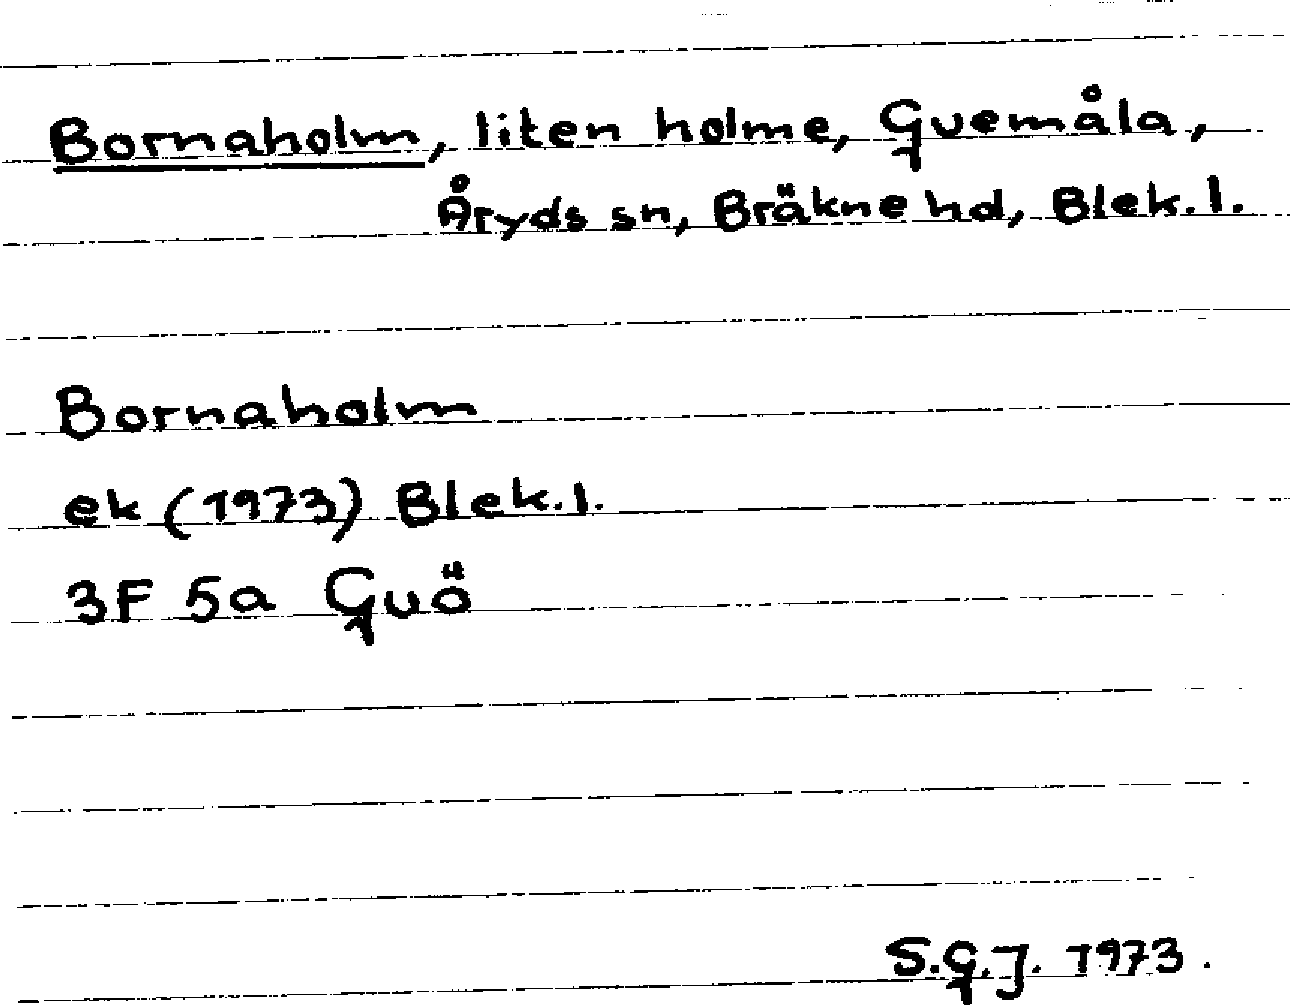 Bornaholm, liten holme, Guemåla,
Åryds sn, Bräkne hd, Blek. l.
Bornaholm
ek (1973) Blek. l.
3F 5a Guö
S.G.J. 1973.